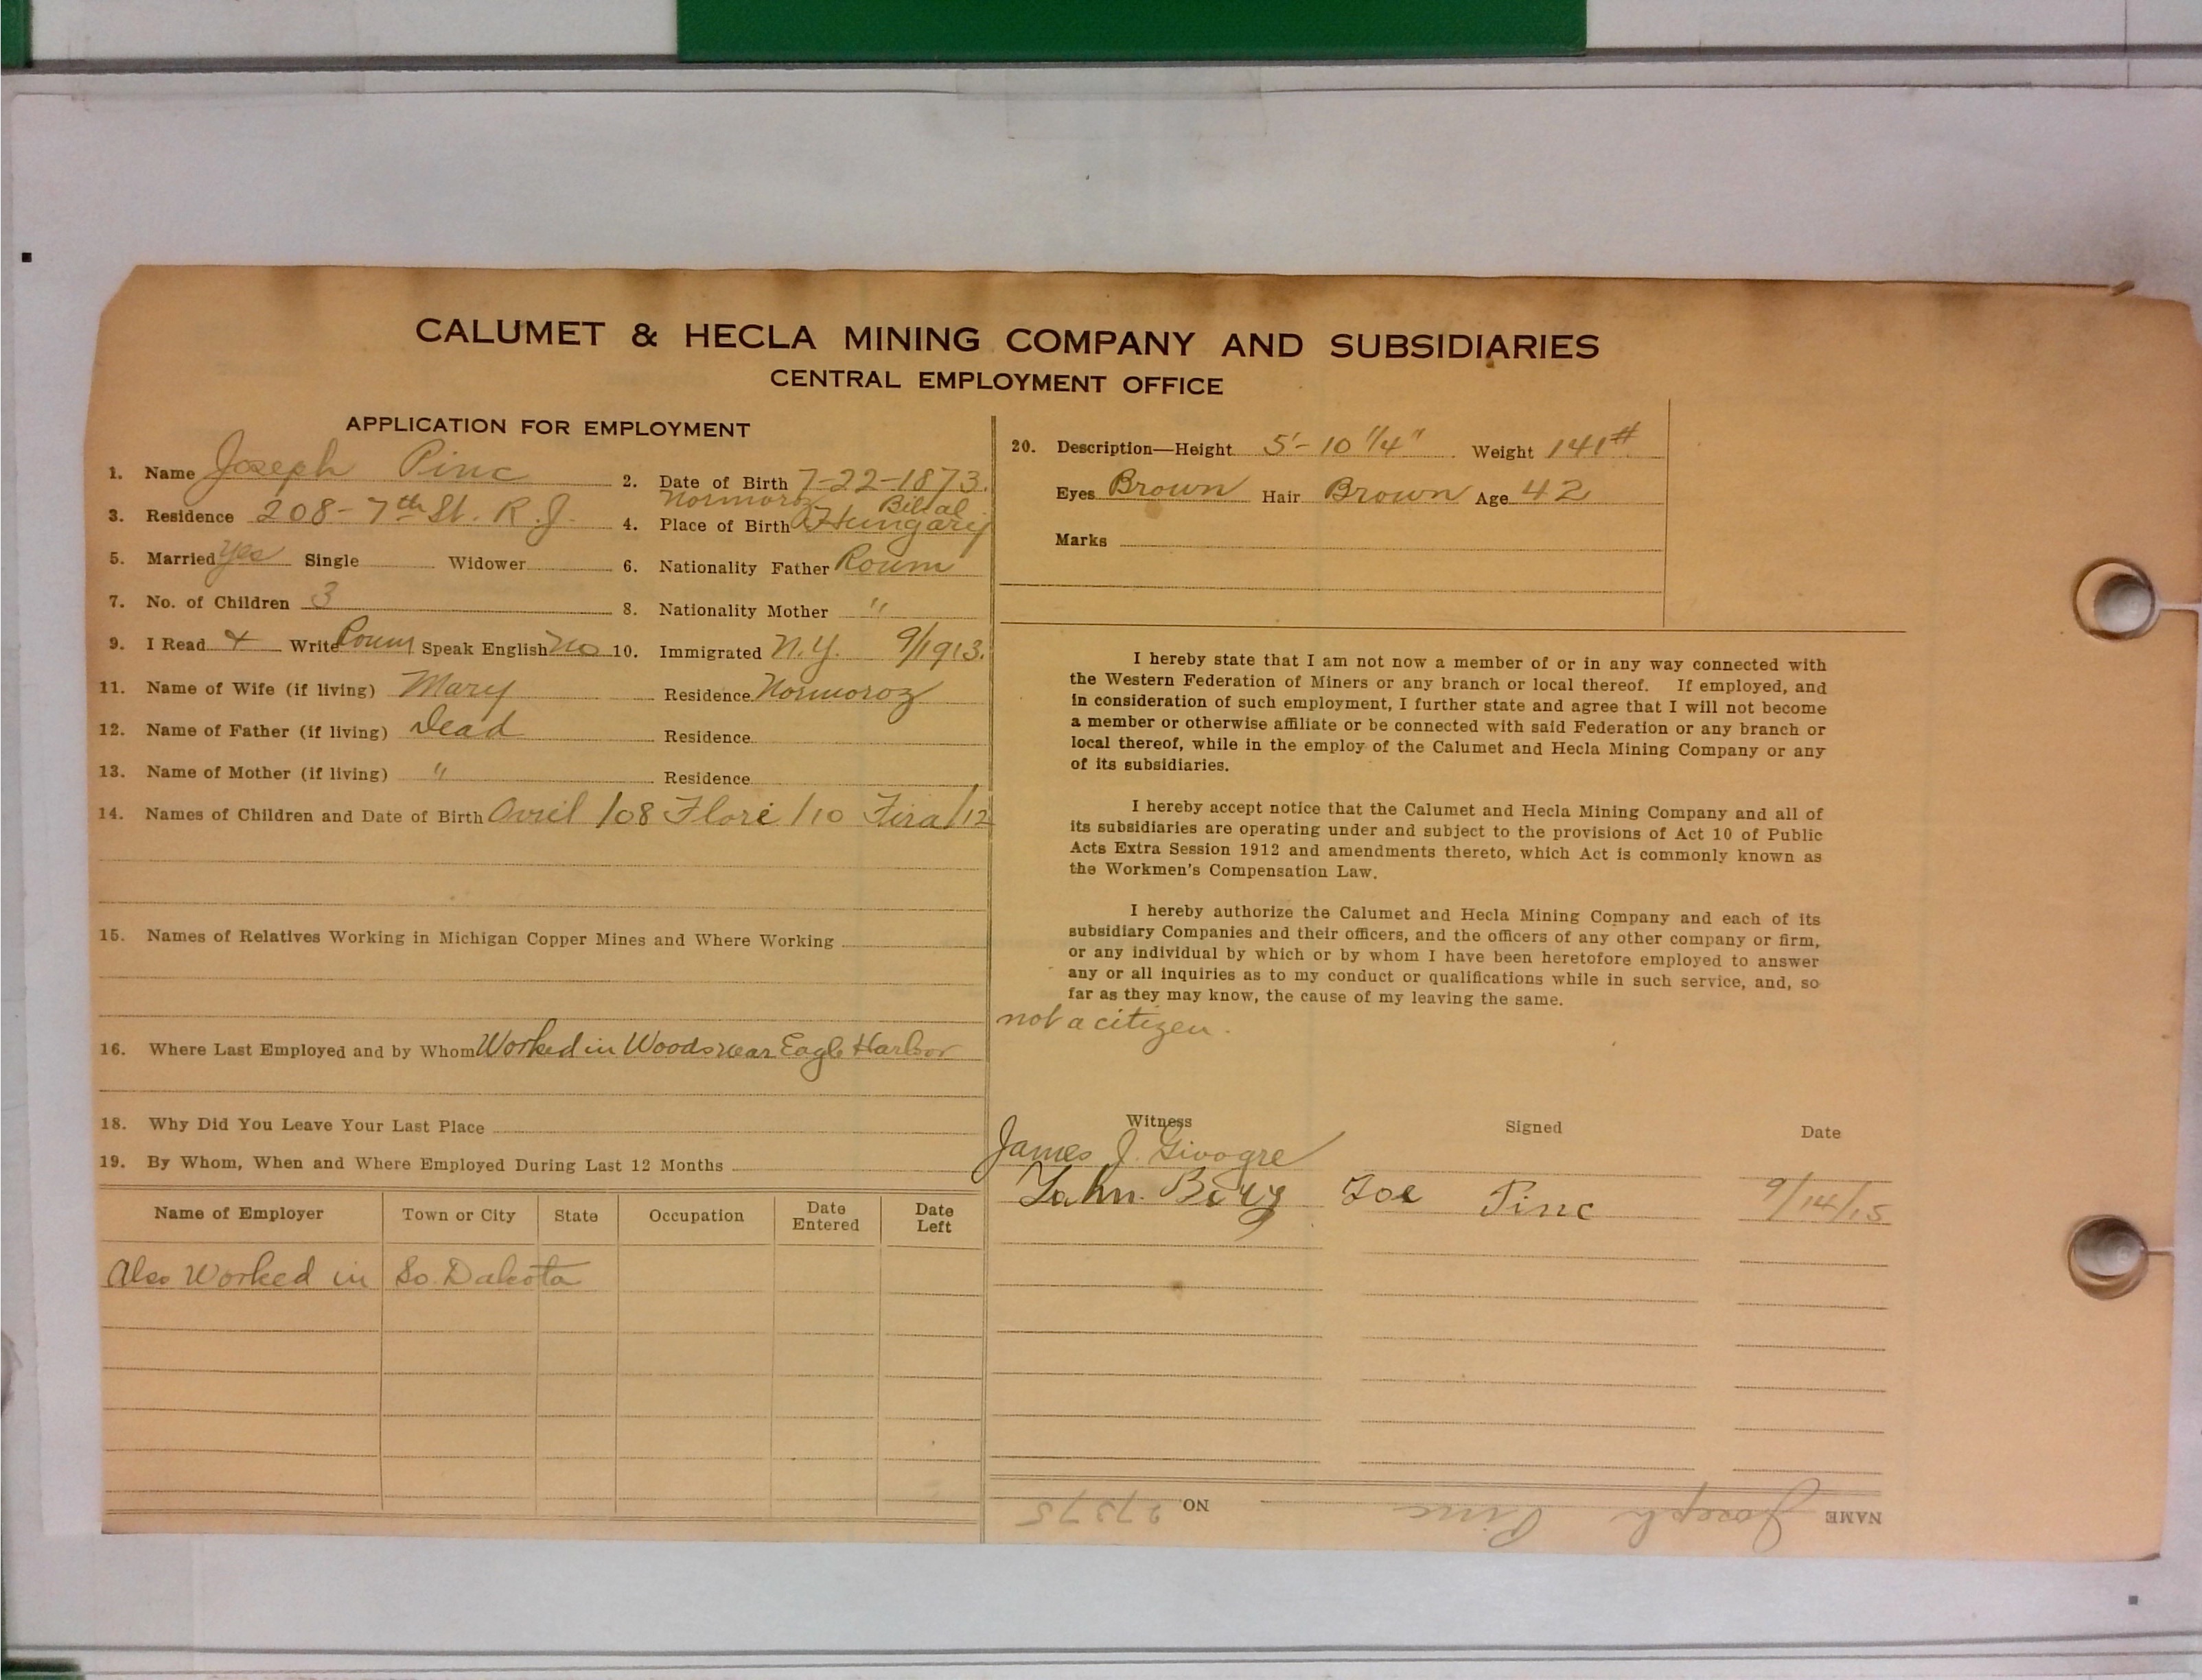 CALUMET & HECLA MINING COMPANY AND SUBSIDIARIES
CENTRAL EMPLOYMENT OFFICE
APPLICATION FOR EMPLOYMENT
1. Name Joseph Pinc
2. Date of Birth 7-22-1873.
3. Residence 208-7th St. R.J.
Normoroz Bilial
4. Place of Birth Hungary
5. Married yes Single Widower
6. Nationality Father Roum
7. No. of Children 3
8. Nationality Mother "
9. I Read & Write Roum Speak English No
10. Immigrated N.Y. 9/1913.
11. Name of Wife (if living) Mary Residence Normoroz
12. Name of Father (if living) Dead Residence
13. Name of Mother (if living) " Residence
14. Names of Children and Date of Birth Avril /08 Flore /10 Fira /12
15. Names of Relatives Working in Michigan Copper Mines and Where Working
16. Where Last Employed and by Whom Worked in Woods near Eagle Harbor
18. Why Did You Leave Your Last Place
19. By Whom, When and Where Employed During Last 12 Months
Name of Employer Town or City State Occupation Date Entered Date Left
Also Worked in So. Dakota
20. Description—Height 5'-10 1/4" Weight 141#
Eyes Brown Hair Brown Age 42
Marks
I hereby state that I am not now a member of or in any way connected with
the Western Federation of Miners or any branch or local thereof. If employed, and
in consideration of such employment, I further state and agree that I will not become
a member or otherwise affiliate or be connected with said Federation or any branch or
local thereof, while in the employ of the Calumet and Hecla Mining Company or any
of its subsidiaries.
I hereby accept notice that the Calumet and Hecla Mining Company and all of
its subsidiaries are operating under and subject to the provisions of Act 10 of Public
Acts Extra Session 1912 and amendments thereto, which Act is commonly known as
the Workmen's Compensation Law.
I hereby authorize the Calumet and Hecla Mining Company and each of its
subsidiary Companies and their officers, and the officers of any other company or firm,
or any individual by which or by whom I have been heretofore employed to answer
any or all inquiries as to my conduct or qualifications while in such service, and, so
far as they may know, the cause of my leaving the same.
not a citizen.
Witness Signed Date
James J. Givogre
John Berg Joe Pinc 9/14/15
NAME Joseph Pinc NO 27375